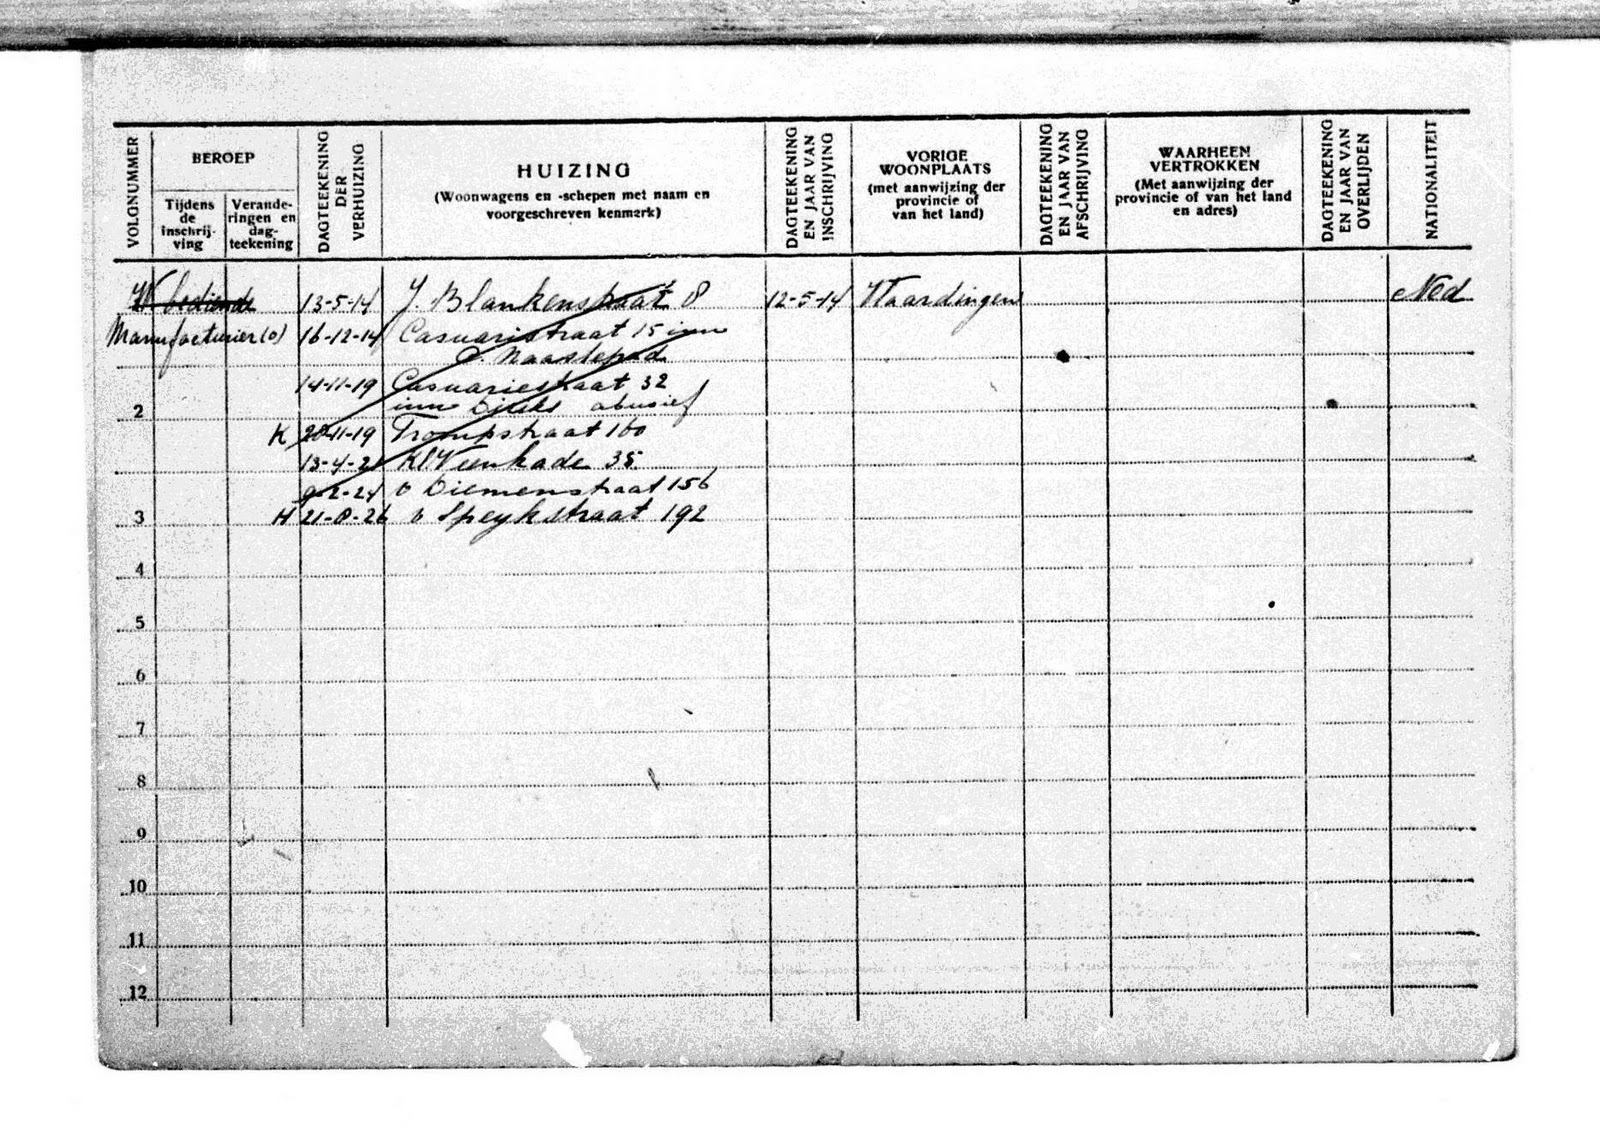 VOLGNUMMER
BEROEP
Tijdens de inschrij-ving
Verande-ringen en dag-teekening
DAGTEEKENING DER VERHUIZING
HUIZING
(Woonwagens en -schepen met naam en voorgeschreven kenmerk)
DAGTEEKENING EN JAAR VAN INSCHRIJVING
VORIGE WOONPLAATS
(met aanwijzing der provincie of van het land)
DAGTEEKENING EN JAAR VAN AFSCHRIJVING
WAARHEEN VERTROKKEN
(Met aanwijzing der provincie of van het land en adres)
DAGTEEKENING EN JAAR VAN OVERLIJDEN
NATIONALITEIT
W bediende 13-5-14 J. Blankenstraat 8 12-5-14 Vlaardingen Ned
Manufacturier (o) 16-12-14 Casuaristraat 15 inw
Naastepad
14-11-19 Casuariestraat 32
2 inw abusief
K 20-11-19 Trompstraat 160
13-4-21 Kl Veenkade 35
9-2-24 v Diemenstraat 156
3 H 21-8-26 v Speykstraat 192
4
5
6
7
8
9
10
11
12